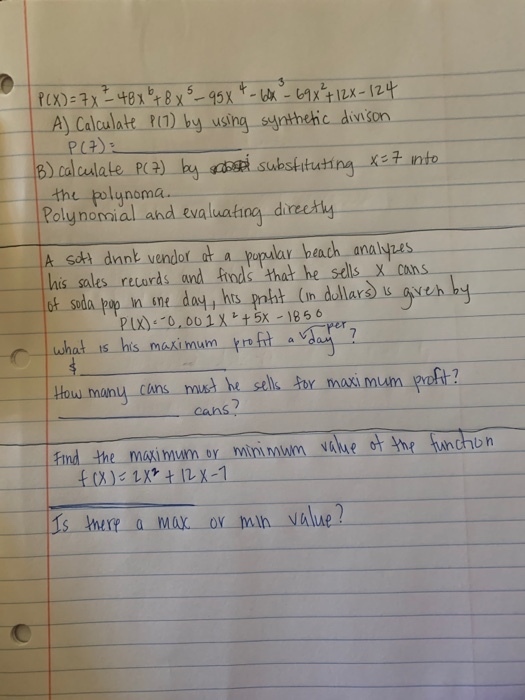 P(X)=7x⁷-48x⁶+8x⁵-95x⁴- x³-69x²+12x-124
A) Calculate P(7) by using synthetic divison
P(7)=
B) calculate P(7) by substituting x=7 into
the polynoma.
Polynomial and evaluating directly
A soft drink vendor at a popular beach analyzes
his sales records and finds that he sells x cans
of soda pop in one day, his profit (in dollars) is given by
P(X)=-0.001x²+5x-1850
what is his maximum profit a per day?
$
How many cans must he sells for maximum profit?
cans?
Find the maximum or minimum value of the function
f(x)=2x²+12x-7
Is there a max or min value?